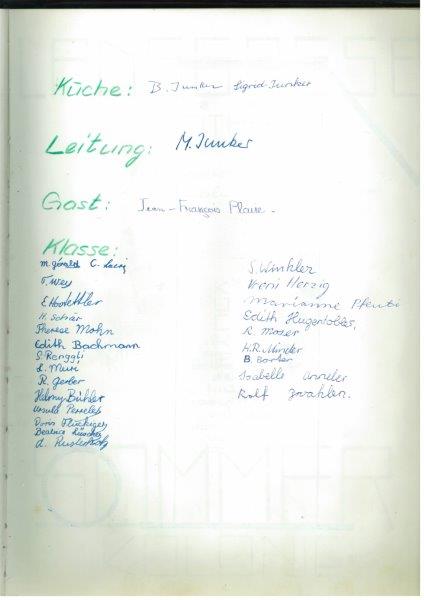 Küche: B. Junker Sigrid Junker
Leitung: M. Junker
Gast: Jean-François
Klasse:
M. Gérald C.
F. Wey
E. Hostettler
H. Schär
Therese Mohn
Edith Bachmann
S. Renggli
R. Gerber
Bühler
Ursula
Doris Flückiger
Beatrice Lüscher
A.
S. Winkler
Vreni Herzig
Marianne
Edith Hugentobler
R. Moser
H.R. Minder
B.
Isabelle
Rolf Zwahlen.